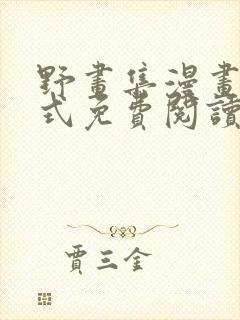 野畫集漫畫
式免費閱讀
賈三金